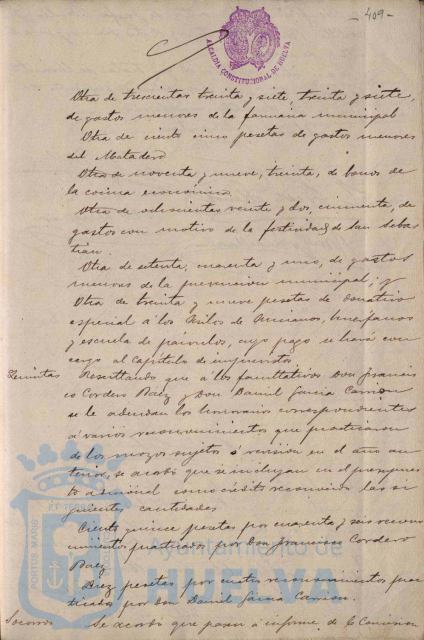 - 409 -
ALCALDIA CONSTITUCIONAL DE HUELVA
Otra de trescientas treinta y siete, treinta y siete,
de gastos menores de la farmacia municipal
Otra de ciento cinco pesetas de gastos menores
del Matadero
Otra de noventa y nueve, treinta, de bonos de
la cocina económica
Otra de ochocientas veinte y dos, cincuenta, de
gastos con motivo de la festividad de San Sebas
tián.
Otra de setenta, cuarenta y uno, de gastos
menores de la prevención municipal; y
Otra de treinta y nueve pesetas de donativo
especial á los Asilos de Ancianos, huérfanos
y escuela de párvulos, cuyo pago se hará con
cargo al Capítulo de imprevistos
Quintas Resultando que á los facultativos Don Francis
co Cordero Paez y Don Daniel Garcia Carrion
se le adeudan los honorarios correspondientes
á varios reconocimientos que practicaron
de los mozos sujetos á revisión en el año an
terior, se acordó que se incluyan en el presupues
to adicional como crédito reconocido las si
guientes cantidades
Ciento quince pesetas por cuarenta y seis recono
cimientos practicados por Don Francisco Cordero
Paez
Diez pesetas por cuatro reconocimientos prac
ticados por Don Daniel Garcia Carrion.
Socorros Se acordó que pasen á informe de la Comision
PORTUS MARIS
Ayuntamiento de
HUELVA